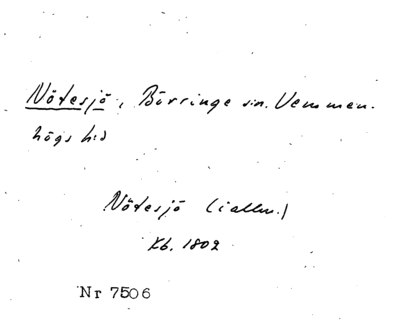 Nötesjö, Börringe sn. Vemmen-
högs hd
Nötesjö (i allm.)
Kb. 1802
Nr 7506